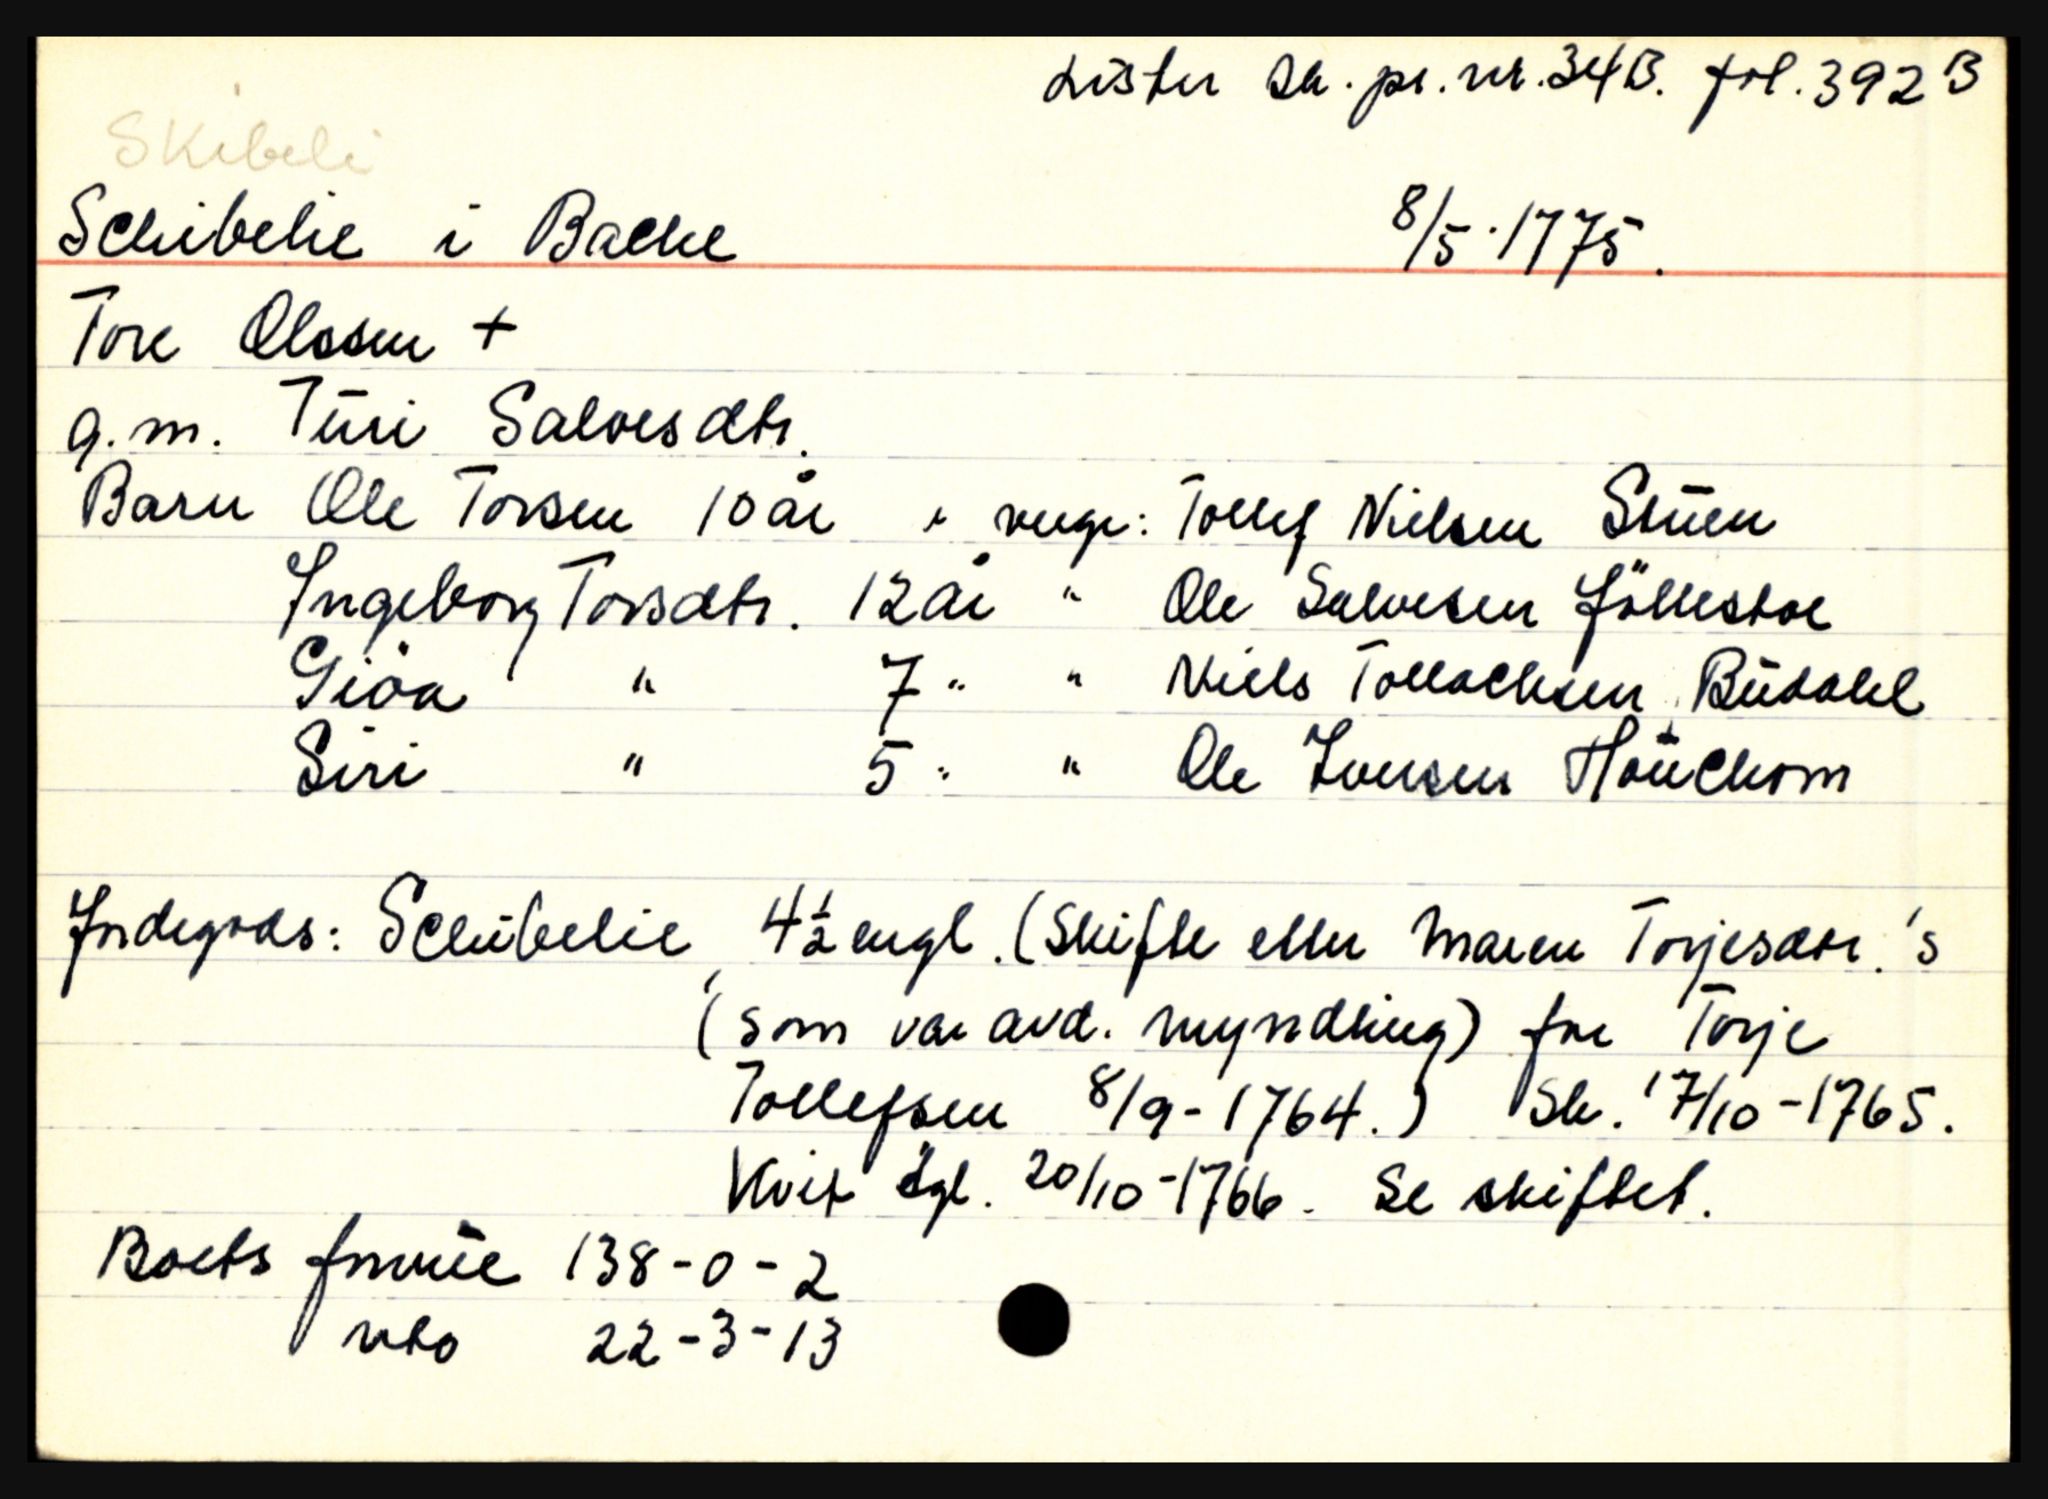 Lister Sk. pr. nr. 34B. fol. 392B
Skibeli
Schibelie i Bache 8/5.1775.
Tore Olssen +
g.m. Turi Salvesdtr.
Barn Ole Torsen 10 år verge: Tollef Nielsen Stuen
Ingeborg Torsdtr. 12 år " Ole Salvesen Föllestoe
Giöa " 7 " " Niels Tollachsen Budahl
Siri " 5 " " Ole Iversen Houchom
Jordegods: Schibelie 4½ engl. (Skifte etter Maren Torjesdtr.'s
(som var avd. myndling) for Torje
Tollefsen 8/9-1764.) Sk. 17/10-1765.
Kvit tgl. 20/10-1766. Se skiftet.
Boets formue 138-0-2
nto 22-3-13